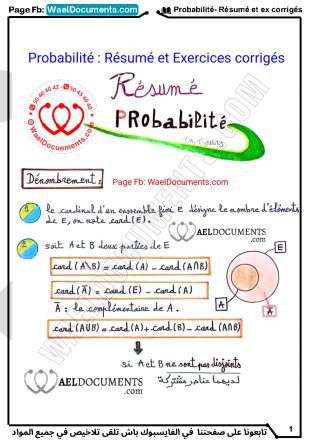 Page Fb: WaelDocuments.com
Probabilité- Résumé et ex corrigés
Probabilité : Résumé et Exercices corrigés
Résumé
PRobabilité
en cours
50 40 40 42 - 50 43 40 40
WaelDocuements.com
Dénombrement :
Page Fb: WaelDocuments.com
1 le cardinal d'un ensemble fini E désigne le nombre d'éléments
de E, on note card(E).
WAELDOCUMENTS
.com
2 soit A et B deux parties de E
card(A\B) = card(A) - card(A∩B)
card(Ā) = card(E) - card(A)
Ā : le complémentaire de A.
card(A∪B) = card(A) + card(B) - card(A∩B)
E
A
Ā
si A et B ne sont pas disjoints
لديهما عناصر مشتركة
WAELDOCUMENTS
.com
تابعونا على صفحتنا في الفايسبوك باش تلقى تلاخيص في جميع المواد
1